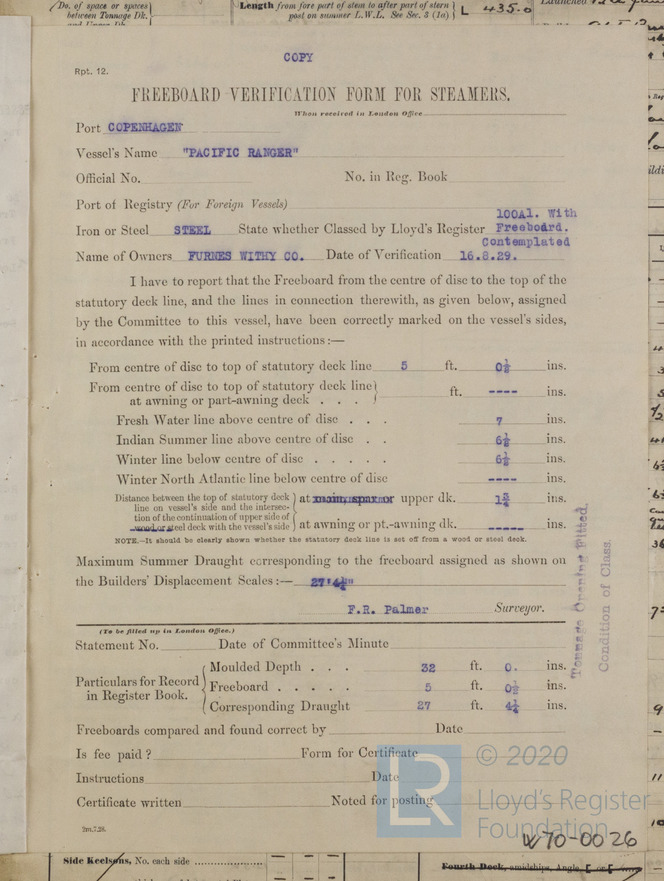 (Do. of space or spaces
between Tonnage Dk.
and Upper Dk.
Length from fore part of stem to after part of stern
post on summer L.W.L. See Sec. 3 (1a)
L 435.0
Launched
COPY
Rpt. 12.
FREEBOARD VERIFICATION FORM FOR STEAMERS.
When received in London Office
Port COPENHAGEN
Vessel's Name "PACIFIC RANGER"
Official No. No. in Reg. Book
Port of Registry (For Foreign Vessels)
100A1. With
Iron or Steel STEEL State whether Classed by Lloyd's Register Freeboard.
Contemplated
Name of Owners FURNES WITHY CO. Date of Verification 16.8.29.
I have to report that the Freeboard from the centre of disc to the top of the
statutory deck line, and the lines in connection therewith, as given below, assigned
by the Committee to this vessel, have been correctly marked on the vessel's sides,
in accordance with the printed instructions:—
From centre of disc to top of statutory deck line 5 ft. 0½ ins.
From centre of disc to top of statutory deck line
at awning or part-awning deck . . . ft. ---- ins.
Fresh Water line above centre of disc . . . 7 ins.
Indian Summer line above centre of disc . . 6½ ins.
Winter line below centre of disc . . . . . 6½ ins.
Winter North Atlantic line below centre of disc ---- ins.
Distance between the top of statutory deck
line on vessel's side and the intersec-
tion of the continuation of upper side of
wood or steel deck with the vessel's side
at main, spar or upper dk. ins.
at awning or pt.-awning dk. ----- ins.
NOTE.—It should be clearly shown whether the statutory deck line is set off from a wood or steel deck.
Maximum Summer Draught corresponding to the freeboard assigned as shown on
the Builders' Displacement Scales:— 27'4¼"
F.R. Palmer Surveyor.
Tonnage Opening Fitted.
Condition of Class.
(To be filled up in London Office.)
Statement No. Date of Committee's Minute
Particulars for Record
in Register Book.
Moulded Depth . . . 32 ft. 0. ins.
Freeboard . . . . . 5 ft. 0½ ins.
Corresponding Draught 27 ft. 4¼ ins.
Freeboards compared and found correct by Date
Is fee paid? Form for Certificate
Instructions Date
Certificate written Noted for posting
2m.7.28.
© 2020
LR
Lloyd's Register
Foundation
W70-0026
Side Keelsons, No. each side
Fourth Deck, amidships, Angle, [ or [